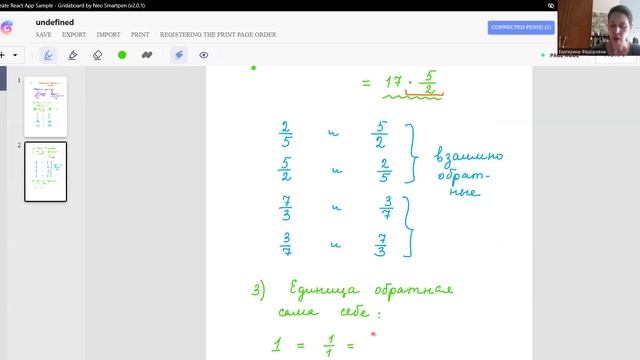 eate React App Sample - Gridaboard by Neo Smartpen (v2.0.1)
undefined
SAVE EXPORT IMPORT PRINT REGISTERING THE PRINT PAGE ORDER
CONNECTED PEN(S) (1)
Екатерина Фёдоровна
1
2
= 17 · 5/2
2/5 и 5/2
5/2 и 2/5
7/3 и 3/7
3/7 и 7/3
взаимно
обрат-
ные
3) Единица обратная
сама себе:
1 = 1/1 =